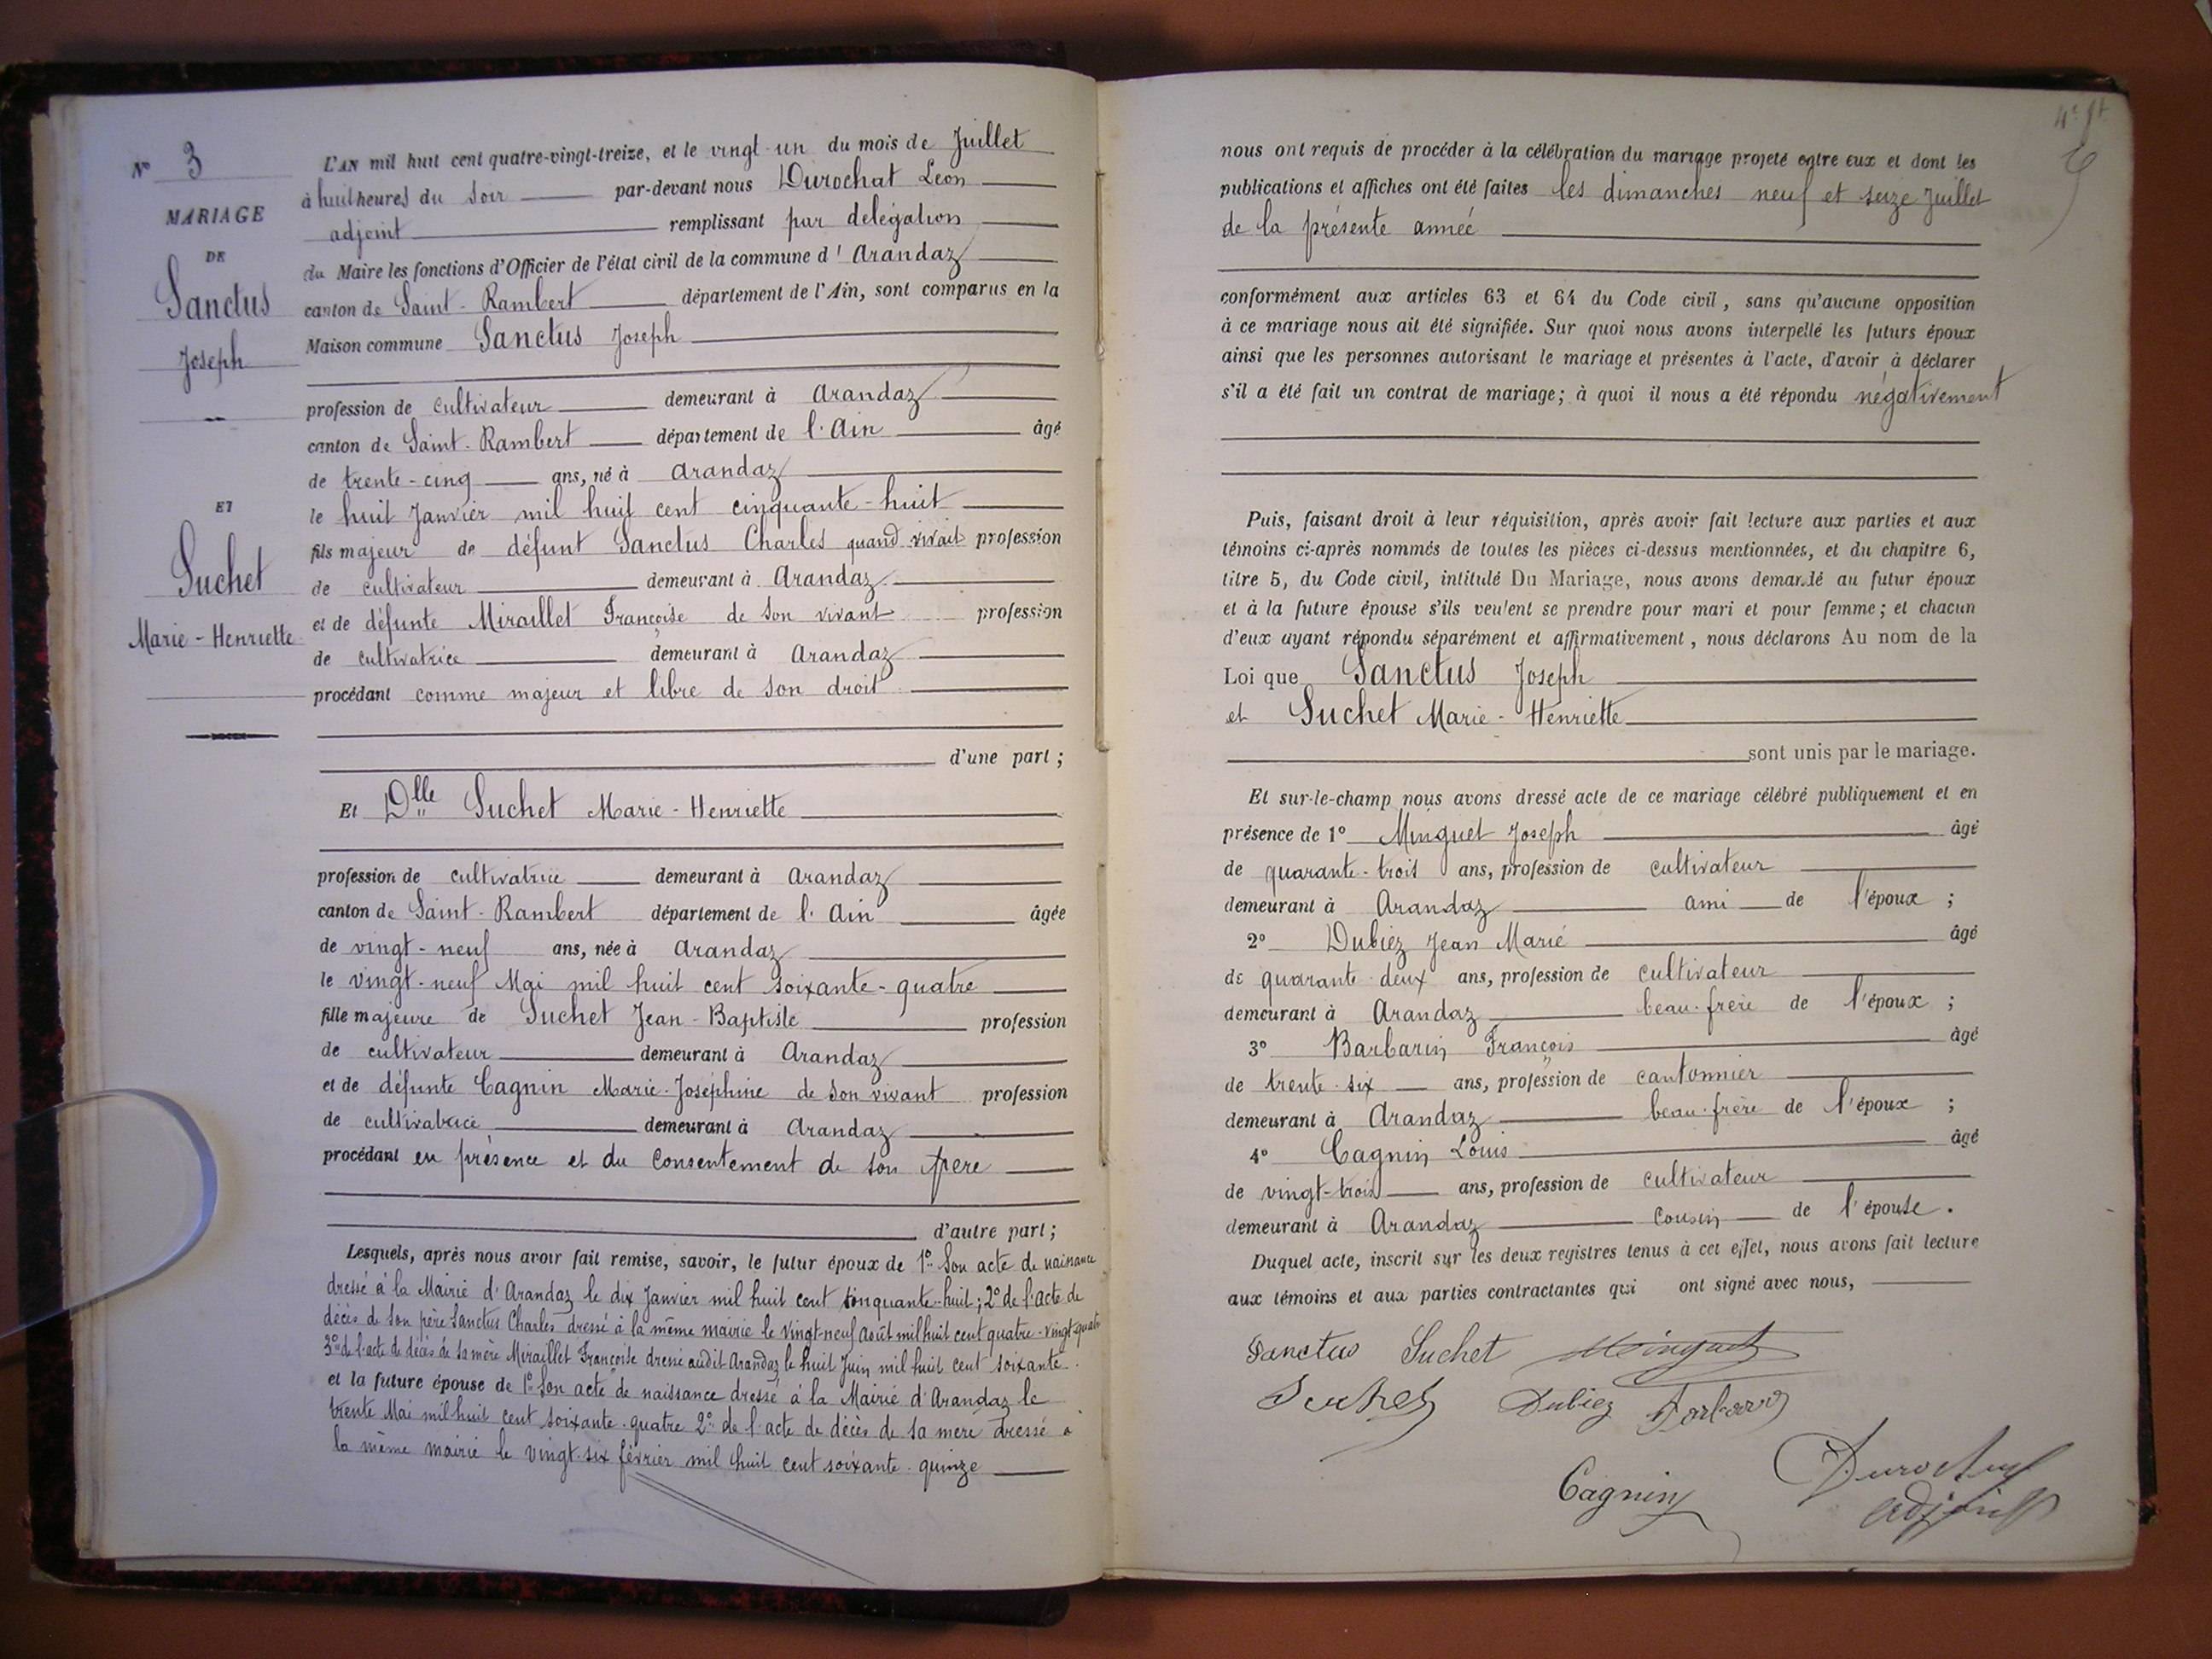 N° 3
MARIAGE
DE
Sanctus
Joseph
ET
Suchet
Marie-Henriette
L'AN mil huit cent quatre-vingt-treize, et le vingt-un du mois de Juillet
à huit heures du soir par-devant nous Durochat Léon
adjoint remplissant par délégation
du Maire les fonctions d'Officier de l'état civil de la commune d'Arandaz
canton de Saint-Rambert département de l'Ain, sont comparus en la
Maison commune Sanctus Joseph
profession de cultivateur demeurant à Arandaz
canton de Saint-Rambert département de l'Ain âgé
de trente-cinq ans, né à Arandaz
le huit Janvier mil huit cent cinquante-huit
fils majeur de défunt Sanctus Charles quand vivait profession
de cultivateur demeurant à Arandaz
et de défunte Miraillet Françoise de son vivant profession
de cultivatrice demeurant à Arandaz
procédant comme majeur et libre de son droit
d'une part;
Et Dlle Suchet Marie-Henriette
profession de cultivatrice demeurant à Arandaz
canton de Saint-Rambert département de l'Ain âgée
de vingt-neuf ans, née à Arandaz
le vingt-neuf Mai mil huit cent soixante-quatre
fille majeure de Suchet Jean-Baptiste profession
de cultivateur demeurant à Arandaz
et de défunte Cagnin Marie-Joséphine de son vivant profession
de cultivatrice demeurant à Arandaz
procédant en présence et du consentement de son père
d'autre part;
Lesquels, après nous avoir fait remise, savoir, le futur époux de 1° Son acte de naissance
dressé à la Mairie d'Arandaz le dix Janvier mil huit cent cinquante-huit; 2° de l'acte de
décès de son père Sanctus Charles dressé à la même mairie le vingt-neuf août mil huit cent quatre-vingt-quatre
3° de l'acte de décès de sa mère Miraillet Françoise dressé audit Arandaz le huit Juin mil huit cent soixante.
et la future épouse de 1° Son acte de naissance dressé à la Mairie d'Arandaz le
trente Mai mil huit cent soixante-quatre 2° de l'acte de décès de sa mère dressé à
la même mairie le vingt-six février mil huit cent soixante-quinze
nous ont requis de procéder à la célébration du mariage projeté entre eux et dont les
publications et affiches ont été faites les dimanches neuf et seize Juillet
de la présente année
conformément aux articles 63 et 64 du Code civil, sans qu'aucune opposition
à ce mariage nous ait été signifiée. Sur quoi nous avons interpellé les futurs époux
ainsi que les personnes autorisant le mariage et présentes à l'acte, d'avoir à déclarer
s'il a été fait un contrat de mariage; à quoi il nous a été répondu négativement
Puis, faisant droit à leur réquisition, après avoir fait lecture aux parties et aux
témoins ci-après nommés de toutes les pièces ci-dessus mentionnées, et du chapitre 6,
titre 5, du Code civil, intitulé Du Mariage, nous avons demandé au futur époux
et à la future épouse s'ils veulent se prendre pour mari et pour femme; et chacun
d'eux ayant répondu séparément et affirmativement, nous déclarons Au nom de la
Loi que Sanctus Joseph
et Suchet Marie-Henriette
sont unis par le mariage.
Et sur-le-champ nous avons dressé acte de ce mariage célébré publiquement et en
présence de 1° Minguet Joseph âgé
de quarante-trois ans, profession de cultivateur
demeurant à Arandaz ami de l'époux;
2° Dubiez Jean Marie âgé
de quarante-deux ans, profession de cultivateur
demeurant à Arandaz beau-frère de l'époux;
3° Barbarin François âgé
de trente-six ans, profession de cantonnier
demeurant à Arandaz beau-frère de l'époux;
4° Cagnin Louis âgé
de vingt-trois ans, profession de cultivateur
demeurant à Arandaz cousin de l'épouse.
Duquel acte, inscrit sur les deux registres tenus à cet effet, nous avons fait lecture
aux témoins et aux parties contractantes qui ont signé avec nous,
Sanctus Suchet Minguet
Suchet Dubiez Barbarin
Cagnin Durochat
adjoint